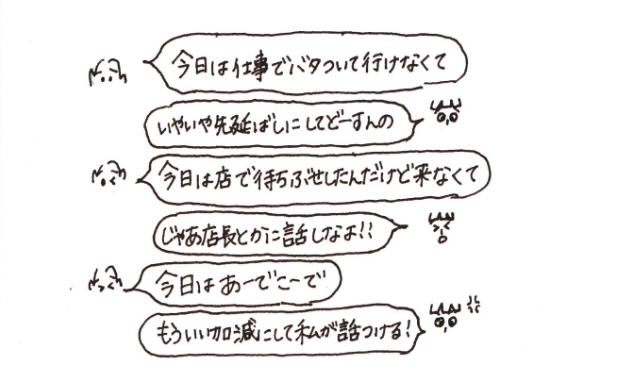 今日は仕事でバタついて行けなくて
いやいや先延ばしにしてどーすんの
今日は店で待ちぶせしたんだけど来なくて
じゃあ店長とかに話しなよ!!
今日はあーでこーで
もういい加減にして私が話つける!